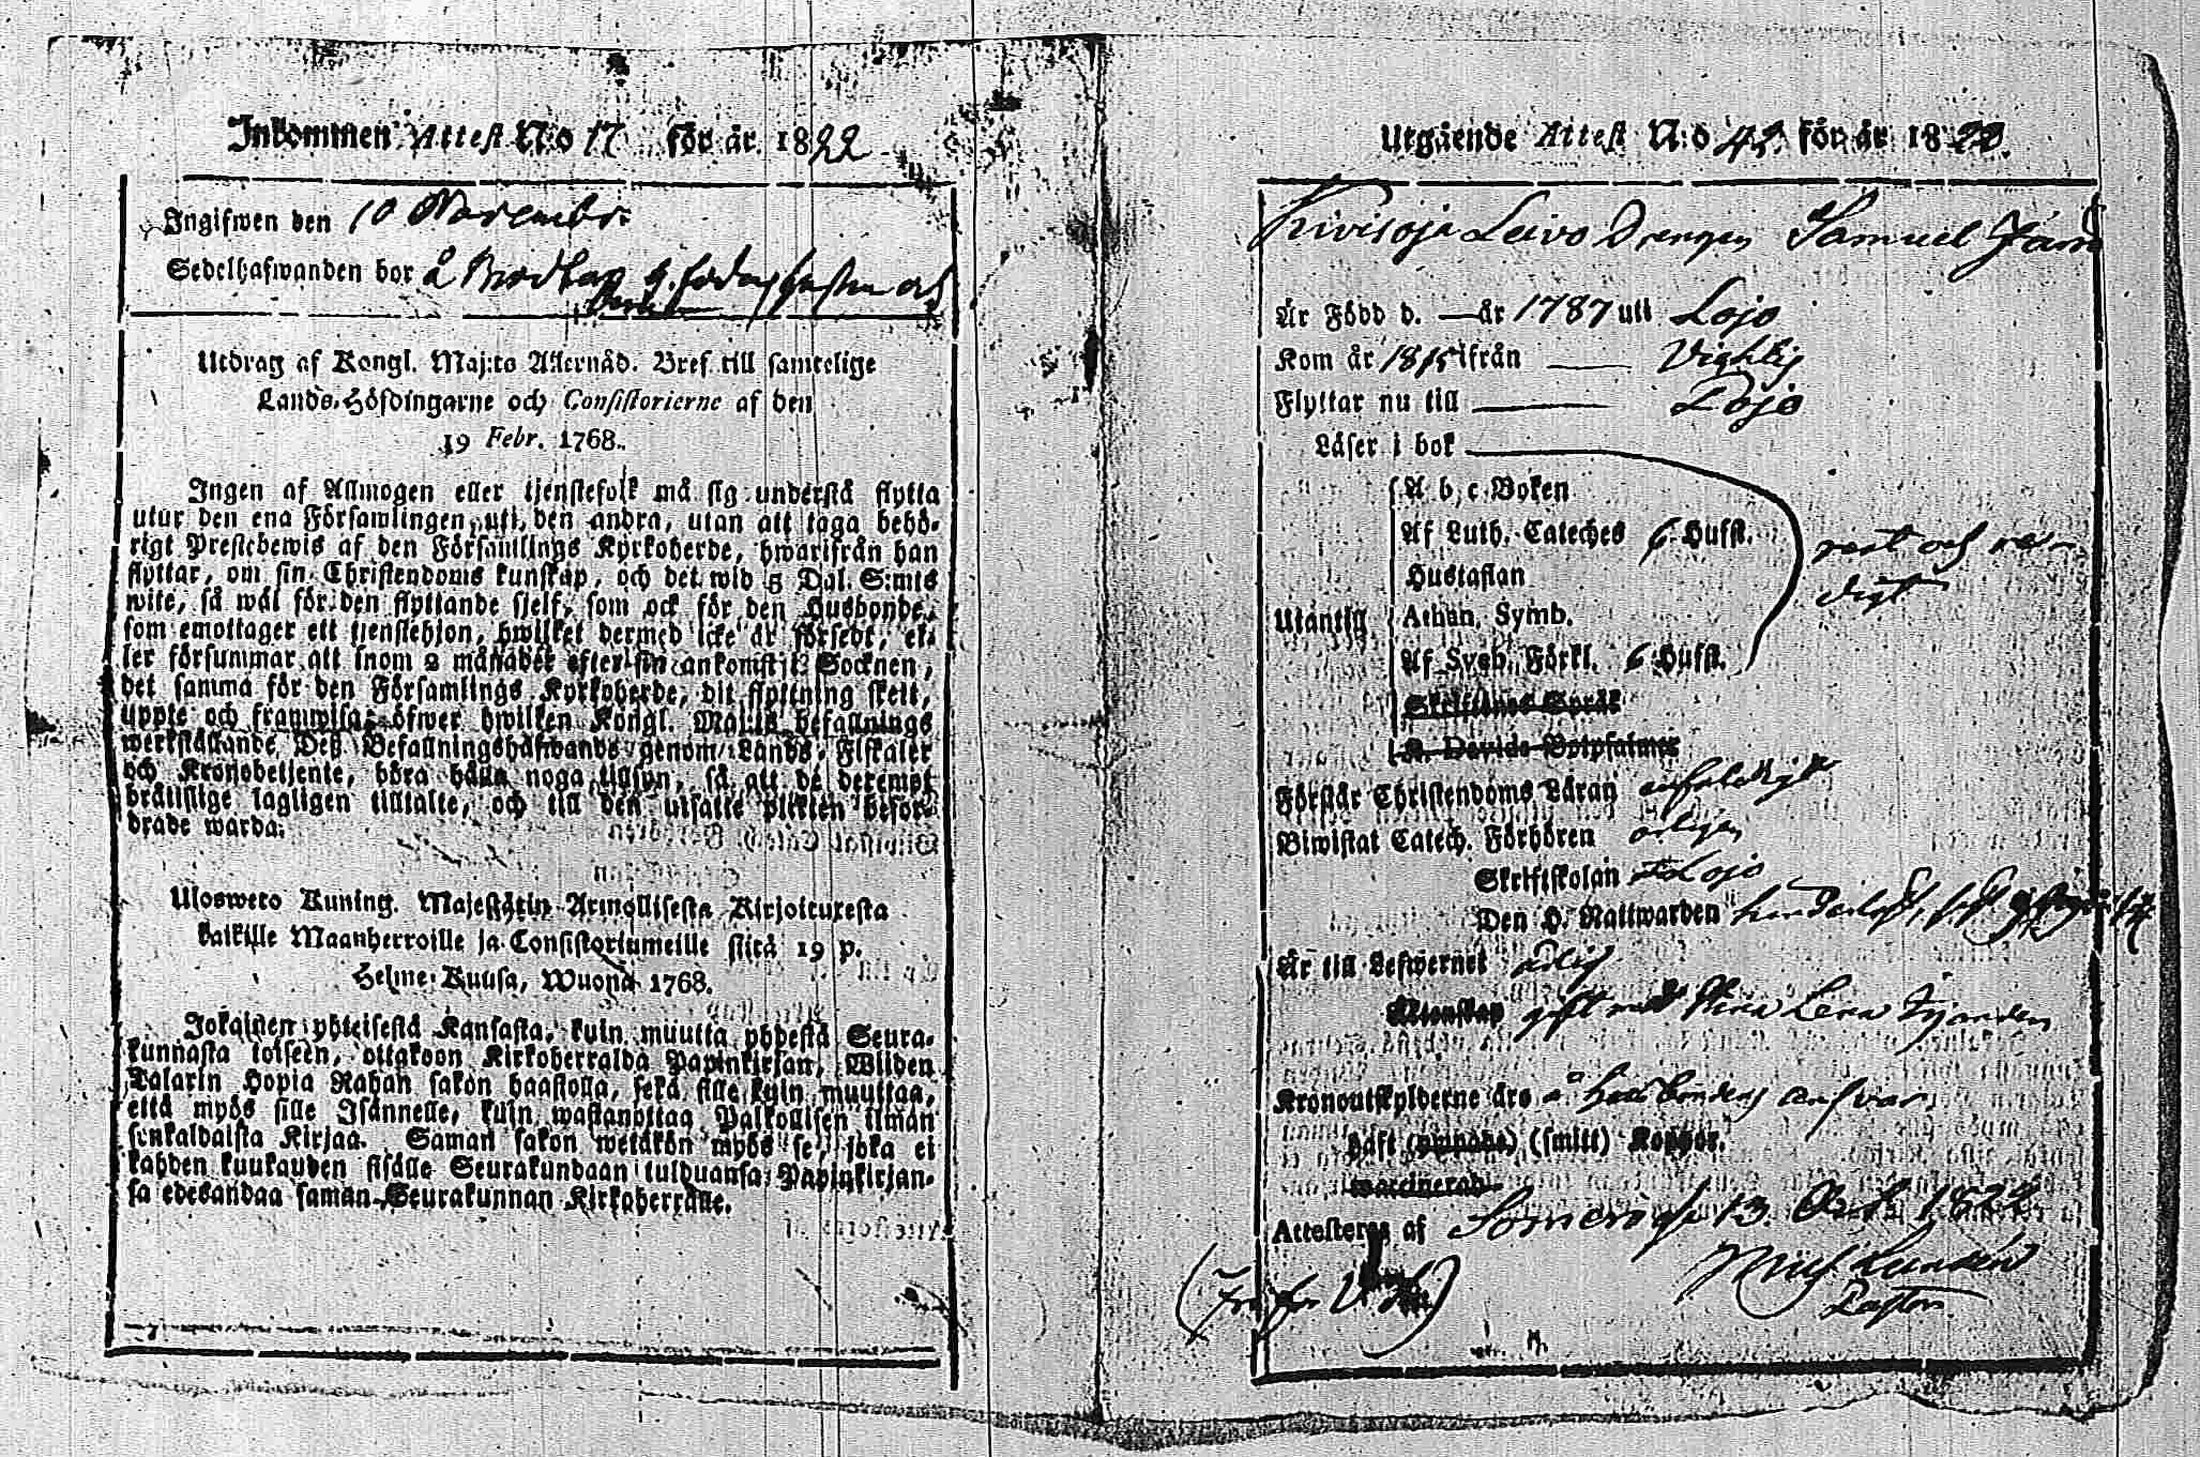 Inkommen Attest N:o 17 för år 1822
Ingifwen den 10 Novembr.
Sedelhafwanden bor å
Utdrag af Kongl. Maj:ts Allernåd. Bref till samtelige
Lands-Höfdingarne och Consistorierne af den
19 Febr. 1768.
Ingen af Allmogen eller tjenstefolk må sig understå flytta
utur den ena Församlingen uti den andra, utan att taga behö-
rigt Prestebewis af den Församlings Kyrkoherde, hwarifrån han
flyttar, om sin Christendoms kunskap, och det wid 5 Dal. S:mts
wite, så wäl för den flyttande sjelf, som ock för den Husbonde,
som emottager ett tjenstehjon, hwilket dermed icke är försedt, el-
ler försummar att inom 2 månader efter sin ankomst til Socknen,
det samma för den Församlings Kyrkoherde, dit flyttning skett,
uppte och framwisa; öfwer hwilken Kongl. Maj:ts befallnings
werkställande Deß Befallningshafwande genom Lands-Fiskaler
och Kronobetjente, böra hålla noga tillsyn, så att de deremot
brättslige lagligen tilltalte, och till den utsatte plikten befor-
drade warda.
Ulosweto Kuning. Majestätin Armollisesta Kirjoituxesta
kaikille Maanherroille ja Consistoriumeille siitä 19 p.
Helme-Kuusa, Wuona 1768.
Jokainen yhteisestä Kansasta, kuin muutta yhdestä Seura-
kunnasta toiseen, ottakoon Kirkoherralda Papinkirjan, Wiiden
Talarin Hopia Rahan sakon haastolla, sekä sille kuin muuttaa,
että myös sille Isännelle, kuin wastanottaa Palkollisen ilman
senkaldaista Kirjaa. Saman sakon wetäkön myös se, joka ei
kahden kuukauden sisälle Seurakundaan tulduansa Papinkirjan-
sa edesandaa saman Seurakunnan Kirkoherralle.
Utgående Attest N:o 42 för år 1822.
Kivisoja Leivo Drengen Samuel
Är Född d. — år 1787 uti Lojo
Kom år 1815 ifrån — Vichtis
Flyttar nu till — Lojo
Läser i bok
A b c Boken
Af Luth. Cateches 6 Hufst.
Hustaflan
Utantig
Athan. Symb.
Af Sveb. Förkl. 6 Hufst.
rent och
Skriftenes Språk
K. Davids Botpsalmer
Förstår Christendoms Läran enfaldigt
Biwistat Catech. Förhören årligen
Skriftskolan i Lojo
Den H. Nattwarden
Är till Lefwernet ärlig
Ätenskap gift med Stina Lena
Kronoutskylderne äro å Husbondens answar.
Haft (ympade) (smitt) Koppor.
waccinerad
Attesteras af Somero d. 13. Oct. 1822
Pastor